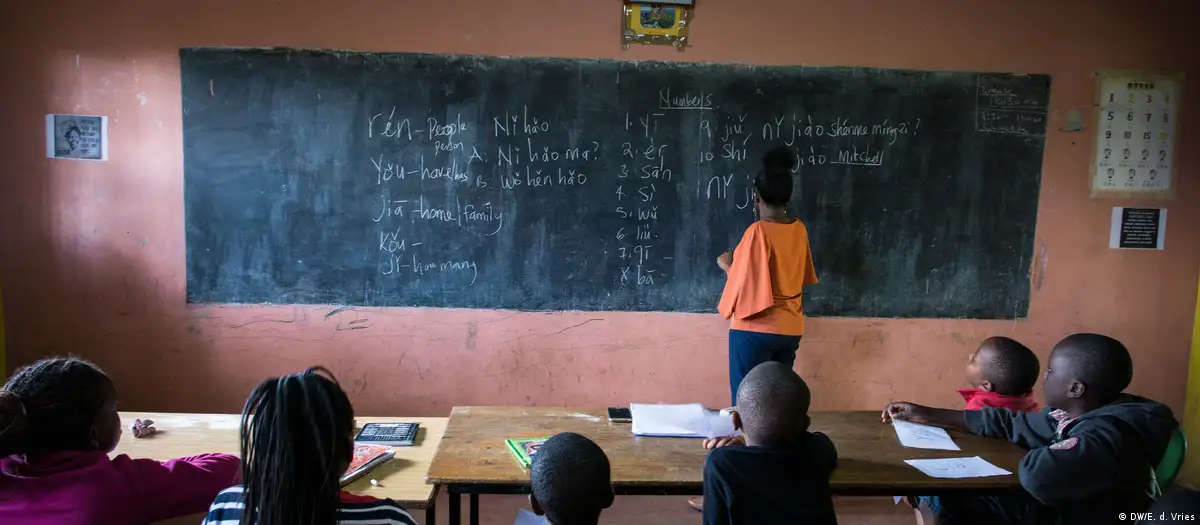 rén - People
person
Yǒu - have/has
jiā - home/family
kǒu -
jǐ - how many
Nǐ hǎo
A: Nǐ hǎo ma?
B. Wǒ hěn hǎo
Numbers
1. yī
2. èr
3. sān
4. sì
5. wǔ
6. liù
7. qī
8. bā
9. jiǔ
10 shí
nǐ jiào shénme míngzi?
jiào Mitchel
nǐ
1 2 3 4
5 6 7 8
9 10 11 12
© DW/E. d. Vries